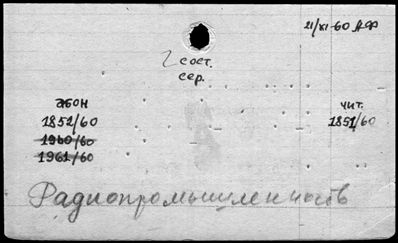 21/XI-60 АФ
2 сост.
сер.
абон чит.
1852/60 1851/60
1960/60
1961/60
Радиопромышленность